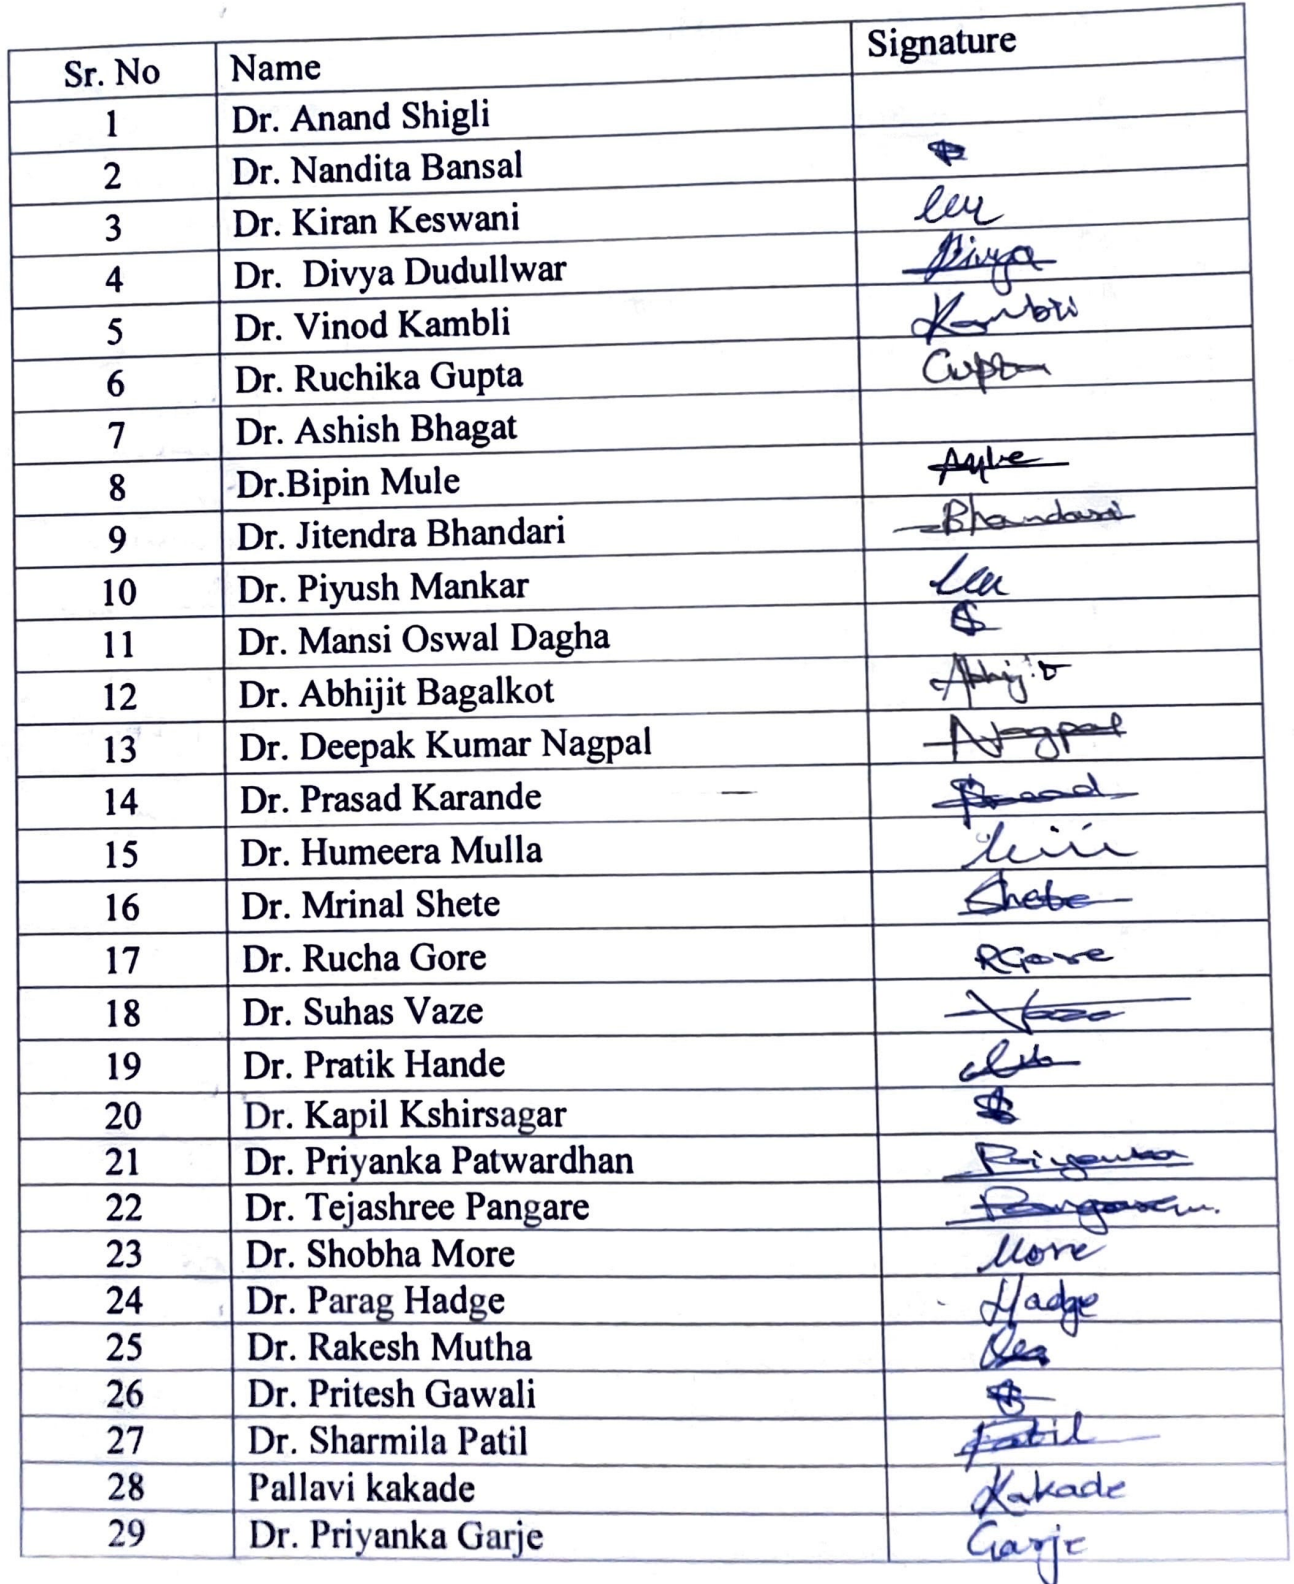 Sr. No Name Signature
1 Dr. Anand Shigli
2 Dr. Nandita Bansal
3 Dr. Kiran Keswani
4 Dr. Divya Dudullwar Divya
5 Dr. Vinod Kambli Kambli
6 Dr. Ruchika Gupta Gupta
7 Dr. Ashish Bhagat
8 Dr.Bipin Mule
9 Dr. Jitendra Bhandari Bhandari
10 Dr. Piyush Mankar
11 Dr. Mansi Oswal Dagha
12 Dr. Abhijit Bagalkot Abhijit
13 Dr. Deepak Kumar Nagpal Nagpal
14 Dr. Prasad Karande Prasad
15 Dr. Humeera Mulla
16 Dr. Mrinal Shete Shete
17 Dr. Rucha Gore RGore
18 Dr. Suhas Vaze Vaze
19 Dr. Pratik Hande
20 Dr. Kapil Kshirsagar
21 Dr. Priyanka Patwardhan Priyanka
22 Dr. Tejashree Pangare
23 Dr. Shobha More More
24 Dr. Parag Hadge Hadge
25 Dr. Rakesh Mutha
26 Dr. Pritesh Gawali
27 Dr. Sharmila Patil Patil
28 Pallavi kakade Kakade
29 Dr. Priyanka Garje Garje